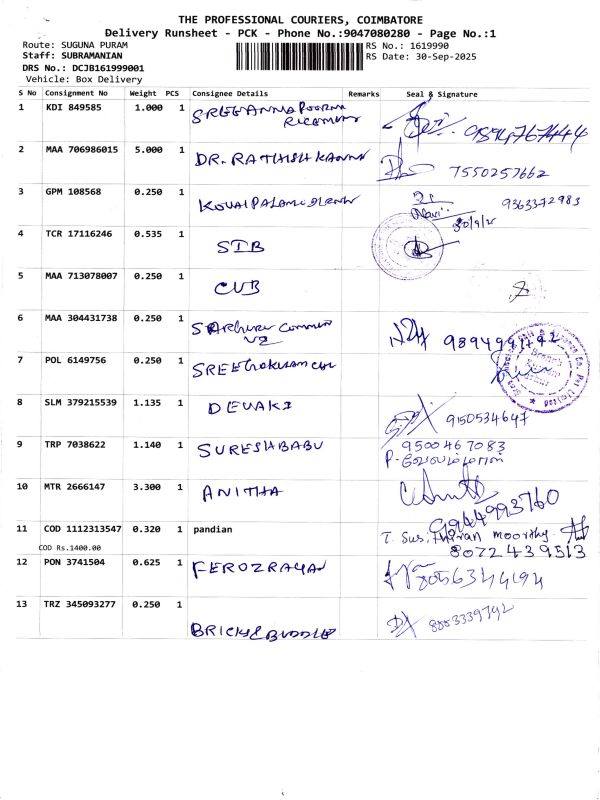 THE PROFESSIONAL COURIERS, COIMBATORE
Delivery Runsheet - PCK - Phone No.:9047080280 - Page No.:1
Route: SUGUNA PURAM
Staff: SUBRAMANIAN
DRS No.: DCJB161999001
Vehicle: Box Delivery
RS No.: 1619990
RS Date: 30-Sep-2025
S No Consignment No Weight PCS Consignee Details Remarks Seal & Signature
1 KDI 849585 1.000 1 SREE ANNA POORNA
2 MAA 706986015 5.000 1 DR. RATHISH KANNN 7550257662
3 GPM 108568 0.250 1 9363372983
30/9/25
4 TCR 17116246 0.535 1 SIB
5 MAA 713078007 0.250 1 CUB
6 MAA 304431738 0.250 1 9894991792
7 POL 6149756 0.250 1 SREE
8 SLM 379215539 1.135 1 DEVAKI 9150534647
9 TRP 7038622 1.140 1 SURESH BABU 9500467083
P. வேலம்மாள்
10 MTR 2666147 3.300 1 ANITHA 9944993760
11 COD 1112313547 0.320 1 pandian T. moorthy
COD Rs.1400.00 8072439513
12 PON 3741504 0.625 1 FEROZRAHAN 8056344194
13 TRZ 345093277 0.250 1 8883339792
BRICK & BUDDLE